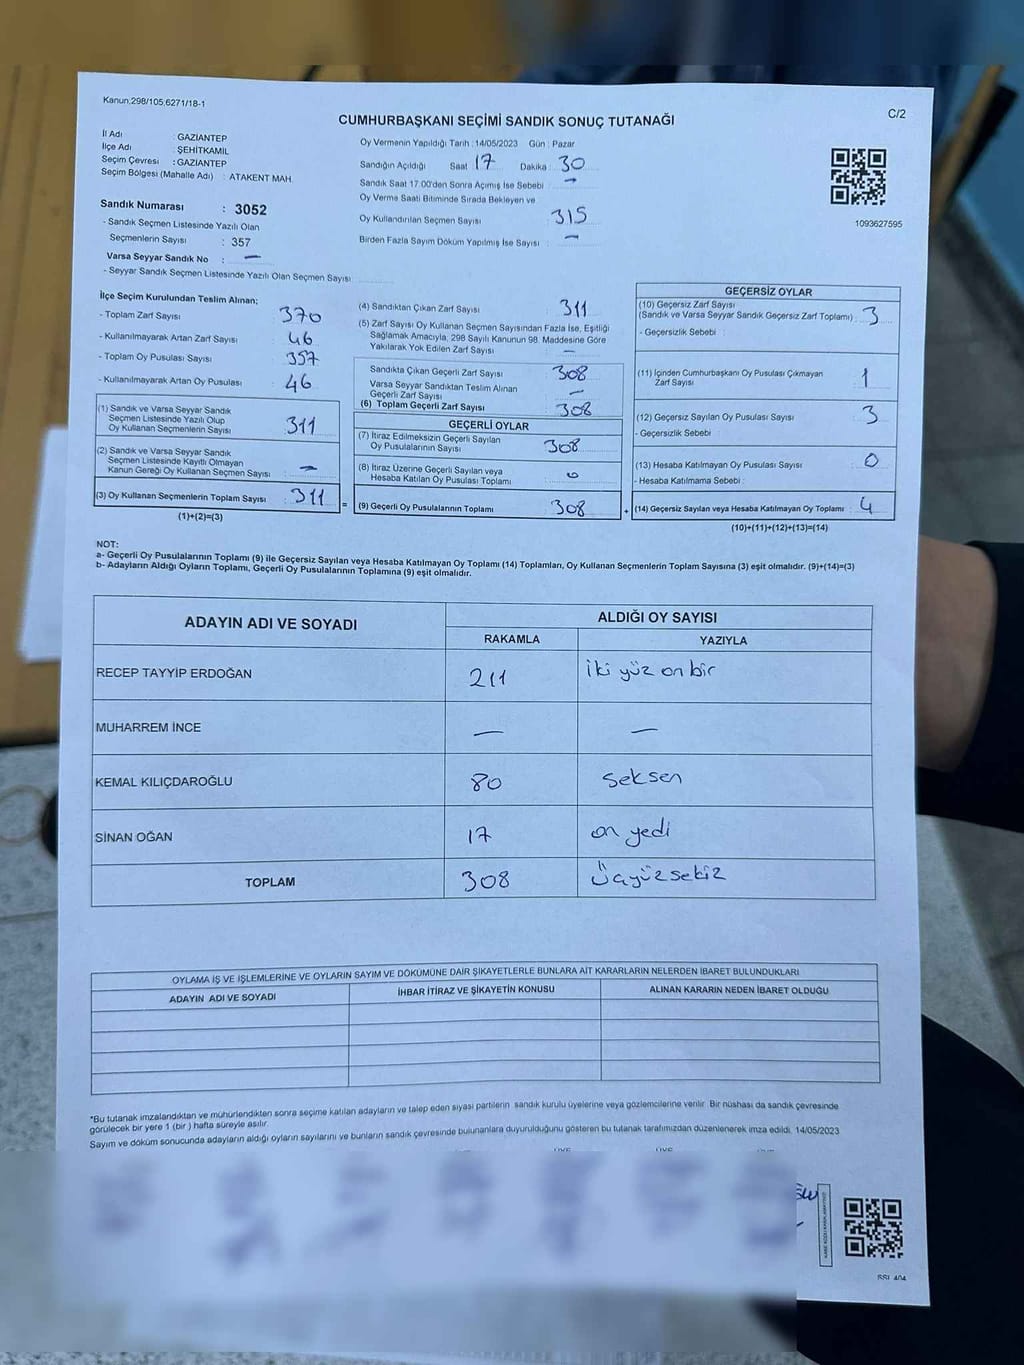 Kanun,298/105,6271/18-1
C/2
CUMHURBAŞKANI SEÇİMİ SANDIK SONUÇ TUTANAĞI
İl Adı : GAZİANTEP
İlçe Adı : ŞEHİTKAMİL
Seçim Çevresi : GAZİANTEP
Seçim Bölgesi (Mahalle Adı) : ATAKENT MAH.
Sandık Numarası : 3052
- Sandık Seçmen Listesinde Yazılı Olan
Seçmenlerin Sayısı : 357
Varsa Seyyar Sandık No : —
- Seyyar Sandık Seçmen Listesinde Yazılı Olan Seçmen Sayısı
Oy Vermenin Yapıldığı Tarih : 14/05/2023 Gün : Pazar
Sandığın Açıldığı Saat 17 Dakika 30
Sandık Saat 17.00'den Sonra Açımış İse Sebebi : —
Oy Verme Saati Bitiminde Sırada Bekleyen ve
Oy Kullandırılan Seçmen Sayısı : 315
Birden Fazla Sayım Döküm Yapılmış İse Sayısı : —
1093627595
İlçe Seçim Kurulundan Teslim Alınan;
- Toplam Zarf Sayısı : 370
- Kullanılmayarak Artan Zarf Sayısı : 46
- Toplam Oy Pusulası Sayısı : 357
- Kullanılmayarak Artan Oy Pusulası : 46
(1) Sandık ve Varsa Seyyar Sandık
Seçmen Listesinde Yazılı Olup
Oy Kullanan Seçmenlerin Sayısı : 311
(2) Sandık ve Varsa Seyyar Sandık
Seçmen Listesinde Kayıtlı Olmayan
Kanun Gereği Oy Kullanan Seçmen Sayısı : —
(3) Oy Kullanan Seçmenlerin Toplam Sayısı : 311
(1)+(2)=(3)
(4) Sandıktan Çıkan Zarf Sayısı : 311
(5) Zarf Sayısı Oy Kullanan Seçmen Sayısından Fazla İse, Eşitliği
Sağlamak Amacıyla, 298 Sayılı Kanunun 98. Maddesine Göre
Yakılarak Yok Edilen Zarf Sayısı : —
Sandıkta Çıkan Geçerli Zarf Sayısı : 308
Varsa Seyyar Sandıktan Teslim Alınan
Geçerli Zarf Sayısı : —
(6) Toplam Geçerli Zarf Sayısı : 308
GEÇERLİ OYLAR
(7) İtiraz Edilmeksizin Geçerli Sayılan
Oy Pusulalarının Sayısı : 308
(8) İtiraz Üzerine Geçerli Sayılan veya
Hesaba Katılan Oy Pusulası Toplamı : 0
= (9) Geçerli Oy Pusulalarının Toplamı : 308
GEÇERSİZ OYLAR
(10) Geçersiz Zarf Sayısı
(Sandık ve Varsa Seyyar Sandık Geçersiz Zarf Toplamı) : 3
- Geçersizlik Sebebi :
(11) İçinden Cumhurbaşkanı Oy Pusulası Çıkmayan
Zarf Sayısı : 1
(12) Geçersiz Sayılan Oy Pusulası Sayısı : 3
- Geçersizlik Sebebi :
(13) Hesaba Katılmayan Oy Pusulası Sayısı : 0
- Hesaba Katılmama Sebebi :
+ (14) Geçersiz Sayılan veya Hesaba Katılmayan Oy Toplamı : 4
(10)+(11)+(12)+(13)=(14)
NOT:
a- Geçerli Oy Pusulalarının Toplamı (9) ile Geçersiz Sayılan veya Hesaba Katılmayan Oy Toplamı (14) Toplamları, Oy Kullanan Seçmenlerin Toplam Sayısına (3) eşit olmalıdır. (9)+(14)=(3)
b- Adayların Aldığı Oyların Toplamı, Geçerli Oy Pusulalarının Toplamına (9) eşit olmalıdır.
ADAYIN ADI VE SOYADI ALDIĞI OY SAYISI
RAKAMLA YAZIYLA
RECEP TAYYİP ERDOĞAN 211 iki yüz on bir
MUHARREM İNCE — —
KEMAL KILIÇDAROĞLU 80 seksen
SİNAN OĞAN 17 on yedi
TOPLAM 308 üçyüzsekiz
OYLAMA İŞ VE İŞLEMLERİNE VE OYLARIN SAYIM VE DÖKÜMÜNE DAİR ŞİKAYETLERLE BUNLARA AİT KARARLARIN NELERDEN İBARET BULUNDUKLARI
ADAYIN ADI VE SOYADI İHBAR İTİRAZ VE ŞİKAYETİN KONUSU ALINAN KARARIN NEDEN İBARET OLDUĞU
*Bu tutanak imzalandıktan ve mühürlendikten sonra seçime katılan adayların ve talep eden siyasi partilerin sandık kurulu üyelerine veya gözlemcilerine verilir. Bir nüshası da sandık çevresinde
görülecek bir yere 1 (bir ) hafta süreyle asılır.
Sayım ve döküm sonucunda adayların aldığı oyların sayılarını ve bunların sandık çevresinde bulunanlara duyurulduğunu gösteren bu tutanak tarafımızdan düzenlenerek imza edildi. 14/05/2023